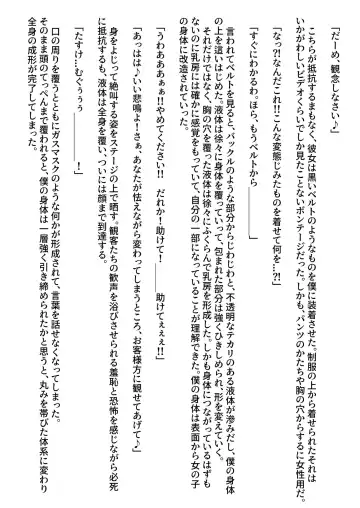 「だーめ、観念しなさい♪」
こちらが抵抗するまもなく、彼女は黒いベルトのようなものを僕に装着させた。制服の上から着せられたそれは
いかがわしいビデオくらいでしか見たことないボンテージだった。しかも、パンツのかたちや胸の穴からするに女性用だ。
「なっ?!なんだこれ!こんな変態じみたものを着せて何を…?!」
「すぐにわかるわ。ほら、もうベルトから―――」
言われてベルトを見ると、バックルのような部分からじわじわと、不透明なテカリのある液体が滲みだし、僕の身体
の上を這いはじめた。液体は徐々に身体を覆っていって、包まれた部分は強くひきしめられ、形を変えていく。
それだけではなく、胸の穴を覆った液体は徐々にふくらんで乳房を形成した。しかも身体につながっているはずも
ないのに乳房には確かに感覚をもっていて、自分の一部になっていることが理解できた。僕の身体は表面から女の子
の身体に改造されていった。
「うわああああぁ!!やめてください!!　だれか!助けて!―――助けてぇぇぇ!!」
「あっはは♪いい悲鳴よ!さぁ、あなたが怯えながら変わってしまうところ、お客様方に観せてあげて♪」
身をよじって絶叫する姿をステージの上で晒す。観客たちの歓声を浴びせられる羞恥と恐怖を感じながら必死
に抵抗するも、液体は全身を覆い、ついには顔まで到達する。
「たすけ…むぐぅぅぅ―――!」
口の周りを覆うとともにガスマスクのような何かが形成されて、言葉を話せなくなってしまった。
そのまま頭のてっぺんまで覆われると、僕の身体は一層強く引き締められたかと思うと、丸みを帯びた体系に変わり
全身の成形が完了してしまった。